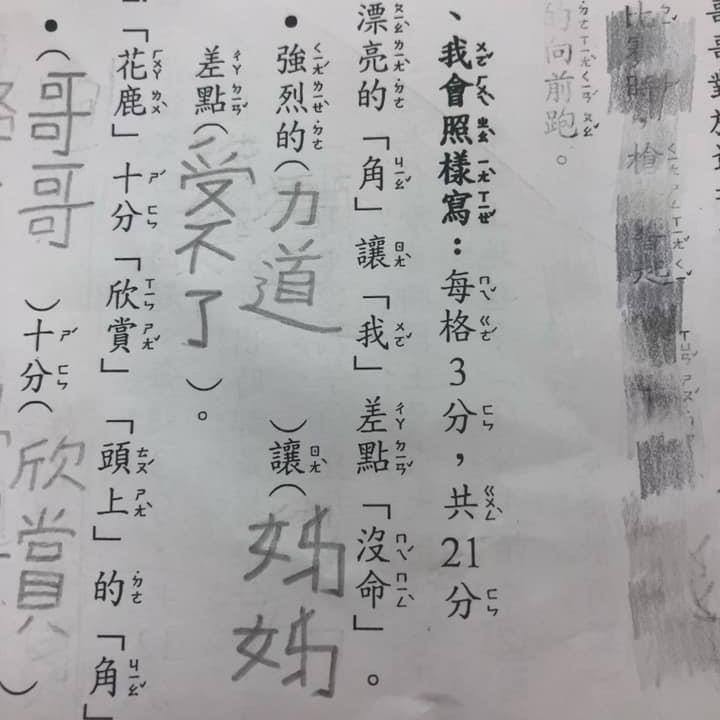 的向前跑。
、我會照樣寫：每格3分，共21分
漂亮的「角」讓「我」差點「沒命」。
●強烈的（力道）讓（姊姊
差點（受不了）。
「花鹿」十分「欣賞」「頭上」的「角」
●（哥哥）十分（欣賞）